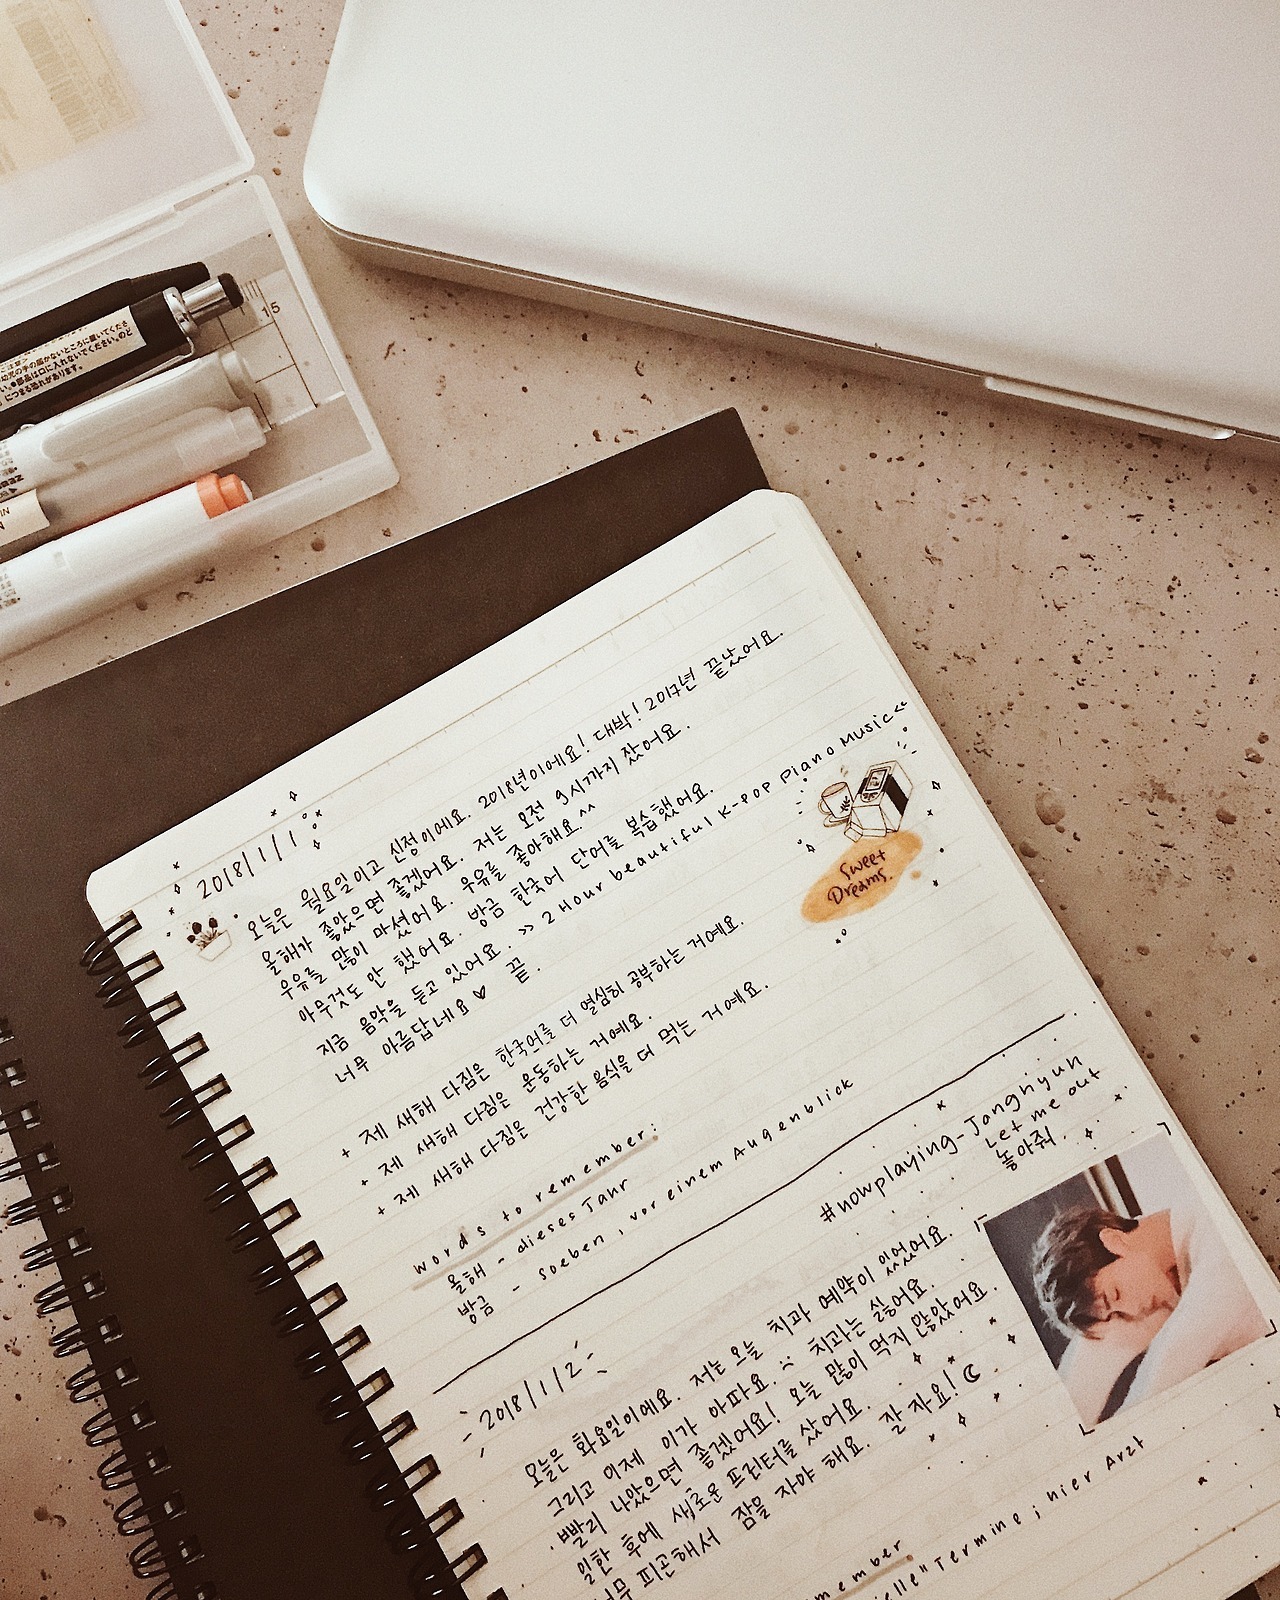 15
ころに置いてください。
の手の届かないところに置いてくださ
い。●部品は口に入れないでください。のど
につまる恐れがあります。
2018/1/1
오늘은 월요일이고 신정이에요. 2018년이에요! 대박! 2017년 끝났어요.
올해가 좋았으면 좋겠어요. 저는 오전 9시까지 잤어요.
우유를 많이 마셨어요. 우유를 좋아해요.^^
아무것도 안 했어요. 방금 한국어 단어를 복습했어요.
지금 음악을 듣고 있어요. >> 2 Hour beautiful K-POP Piano Music <<
너무 아름답네요♡ 끝.
Sweet
Dreams.
+ 제 새해 다짐은 한국어를 더 열심히 공부하는 거예요.
+ 제 새해 다짐은 운동하는 거예요.
+ 제 새해 다짐은 건강한 음식을 더 먹는 거예요.
words to remember:
올해 - dieses Jahr
방금 - soeben, vor einem Augenblick
#nowplaying - Jonghyun
Let me out
놓아줘
- 2018/1/2 -
오늘은 화요일이에요. 저는 오늘 치과 예약이 있었어요.
그리고 이제 이가 아파요. :( 치과는 싫어요.
빨리 나았으면 좋겠어요! 오늘 많이 먹지 않았어요.
일한 후에 새로운 프린터를 샀어요.
너무 피곤해서 잠을 자야 해요. 잘 자요!☾
member
elle" Termine; hier Arzt